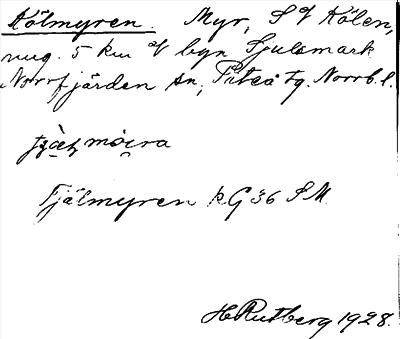 Kölmyren. Myr, S of Kölen,
ung. 5 km of byn Sjulsmark
Norrfjärden sn, Piteå tg. Norrb. l.
möɩra
Tjälmyren kG 36 SM
H Rutberg 1928.